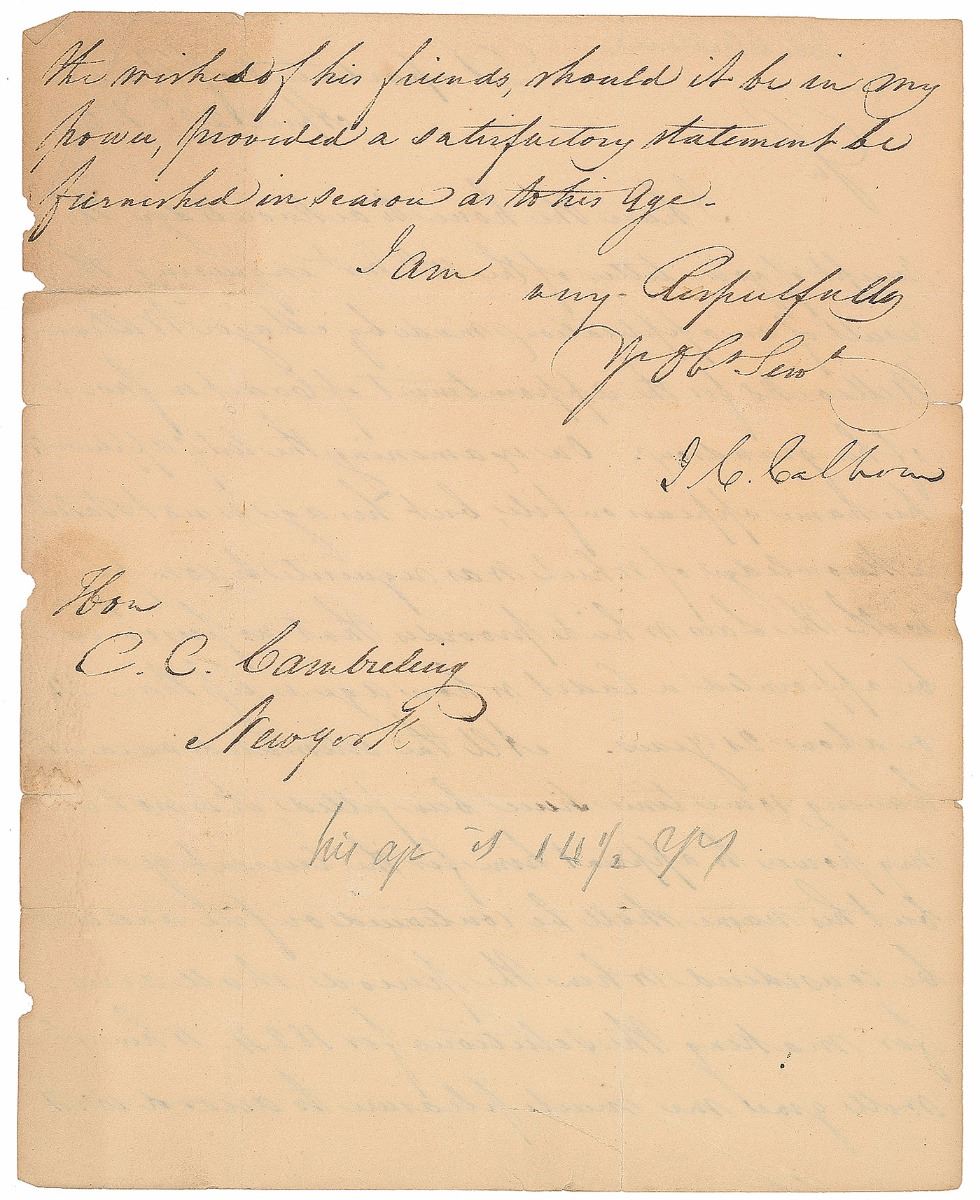 the wishes of his friends, should it be in my
power, provided a satisfactory statement be
furnished in season as to his Age.
I am
very Respectfully
Yr Obt Servt
J. C. Calhoun
Hon
C. C. Cambreling
Newyork
his age is 14 1/2 yrs